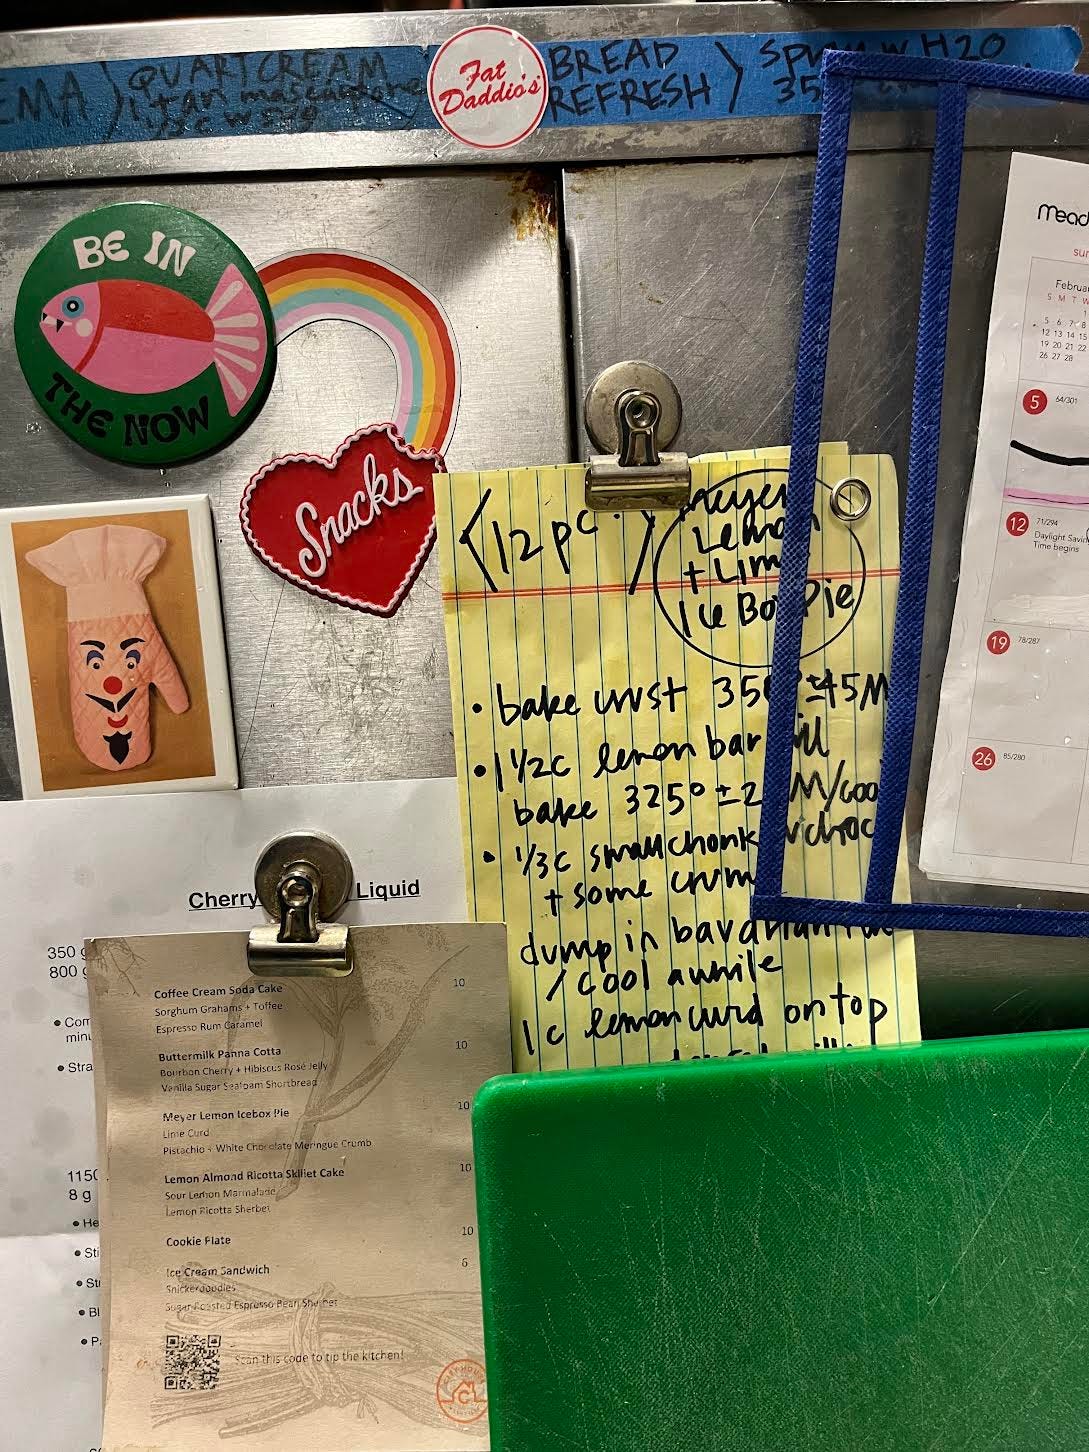 EMA
QUART CREAM
BREAD
REFRESH
H2O
35
Fat
Daddio's
BE IN
THE NOW
Snacks
12 pc.
Lemon
+ Lim
Ice Bo Pie
• bake crust 350° ±45M
• 1 1/2c lemon bar fill
bake 325° ±2 M/cool
• 1/3c small chonk
+ some crum
dump in bavarian
/ cool awhile
1c lemon curd on top
Mead
sun
Februar
S M T W
1
5 6 7 8
12 13 14 15
19 20 21 22
26 27 28
5 64/301
12 71/294
Daylight Savin
Time begins
19 78/287
26 85/280
Cherry Liquid
350 g
800 g
• Com
minu
• Stra
1150
8 g
• He
• Sti
• St
• Bl
• Pa
Coffee Cream Soda Cake 10
Sorghum Grahams + Toffee
Espresso Rum Caramel
Buttermilk Panna Cotta 10
Bourbon Cherry + Hibiscus Rosé Jelly
Vanilla Sugar Seafoam Shortbread
Meyer Lemon Icebox Pie 10
Lime Curd
Pistachio + White Chocolate Meringue Crumb
Lemon Almond Ricotta Skillet Cake 10
Sour Lemon Marmalade
Lemon Ricotta Sherbet
Cookie Plate 10
Ice Cream Sandwich 6
Snickerdoodles
Sugar Roasted Espresso Bean Sherbet
Scan this code to tip the kitchen!